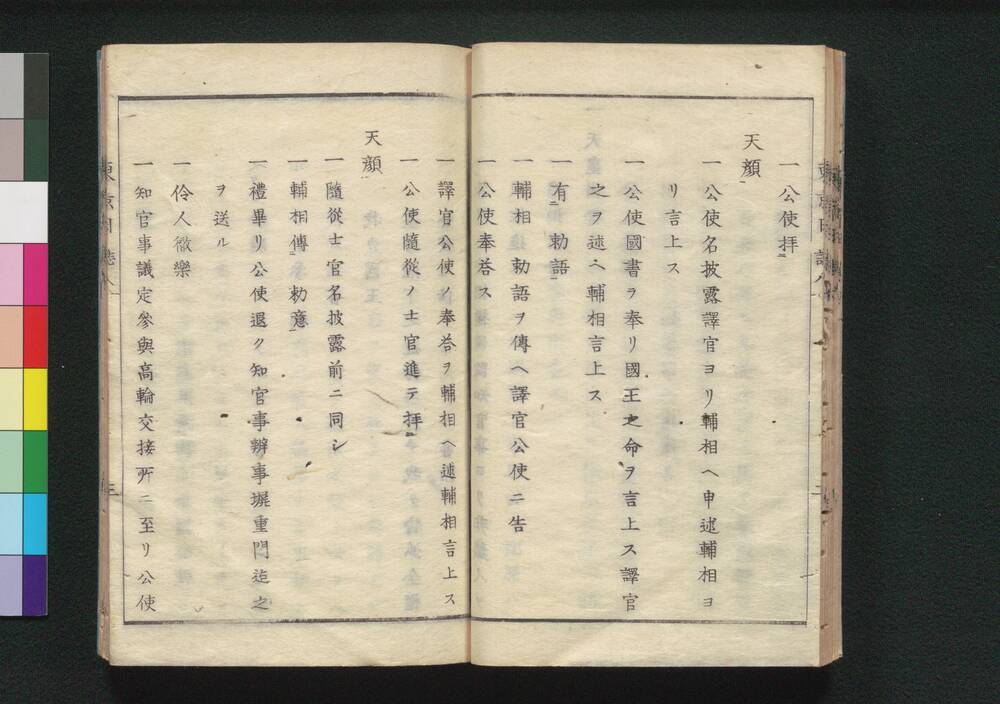 一公使拜二
天顔一
一公使名披露譯官ヨリ輔相ヘ申述輔相ヨ
リ言上ス
一公使國書ヲ奉リ國王之命ヲ言上ス譯官
之ヲ述ヘ輔相言上ス
一有二勅語一
一輔相勅語ヲ傳ヘ譯官公使ニ告
一公使奉荅ス
一譯官公使ノ奉荅ヲ輔相ヘ述輔相言上ス
一公使隨從ノ士官進テ拜二
天顔一
一隨從士官名披露前ニ同シ
一輔相傳二勅意一
一禮畢リ公使退ク知官事辨事塀重門迄之
ヲ送ル
一伶人徹樂
一知官事議定參與高輪交接所ニ至リ公使
東京日誌八
三